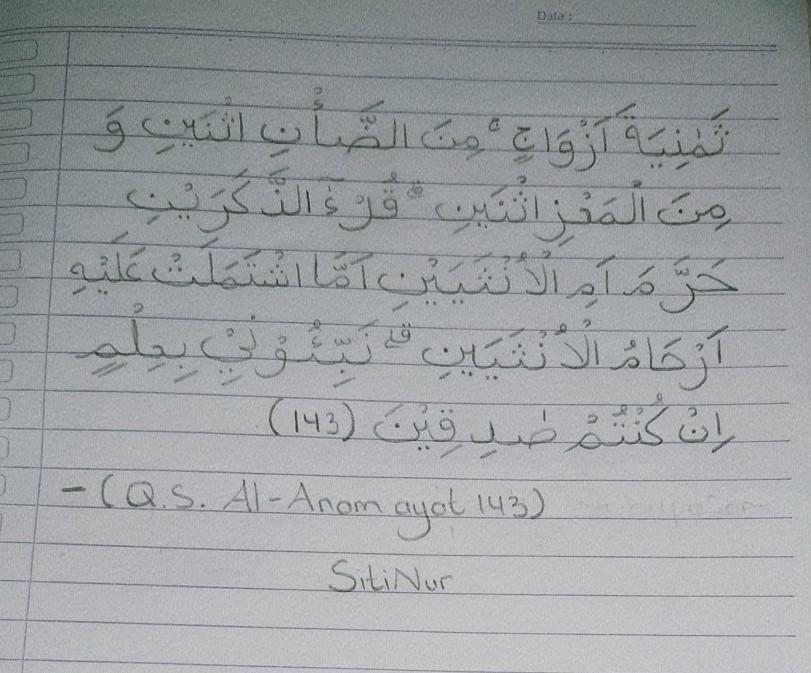 Date :
ثَمٰنِيَةَ اَزْوَاجٍ ۚ مِنَ الضَّأْنِ اثْنَيْنِ وَ
مِنَ الْمَعْزِ اثْنَيْنِ ۗ قُلْ ءٰۤالذَّكَرَيْنِ
حَرَّمَ اَمِ الْاُنْثَيَيْنِ اَمَّا اشْتَمَلَتْ عَلَيْهِ
اَرْحَامُ الْاُنْثَيَيْنِ ۗ نَبِّـُٔوْنِيْ بِعِلْمٍ
اِنْ كُنْتُمْ صٰدِقِيْنَ (143)
- (Q.S. Al-Anam ayat 143)
SitiNur